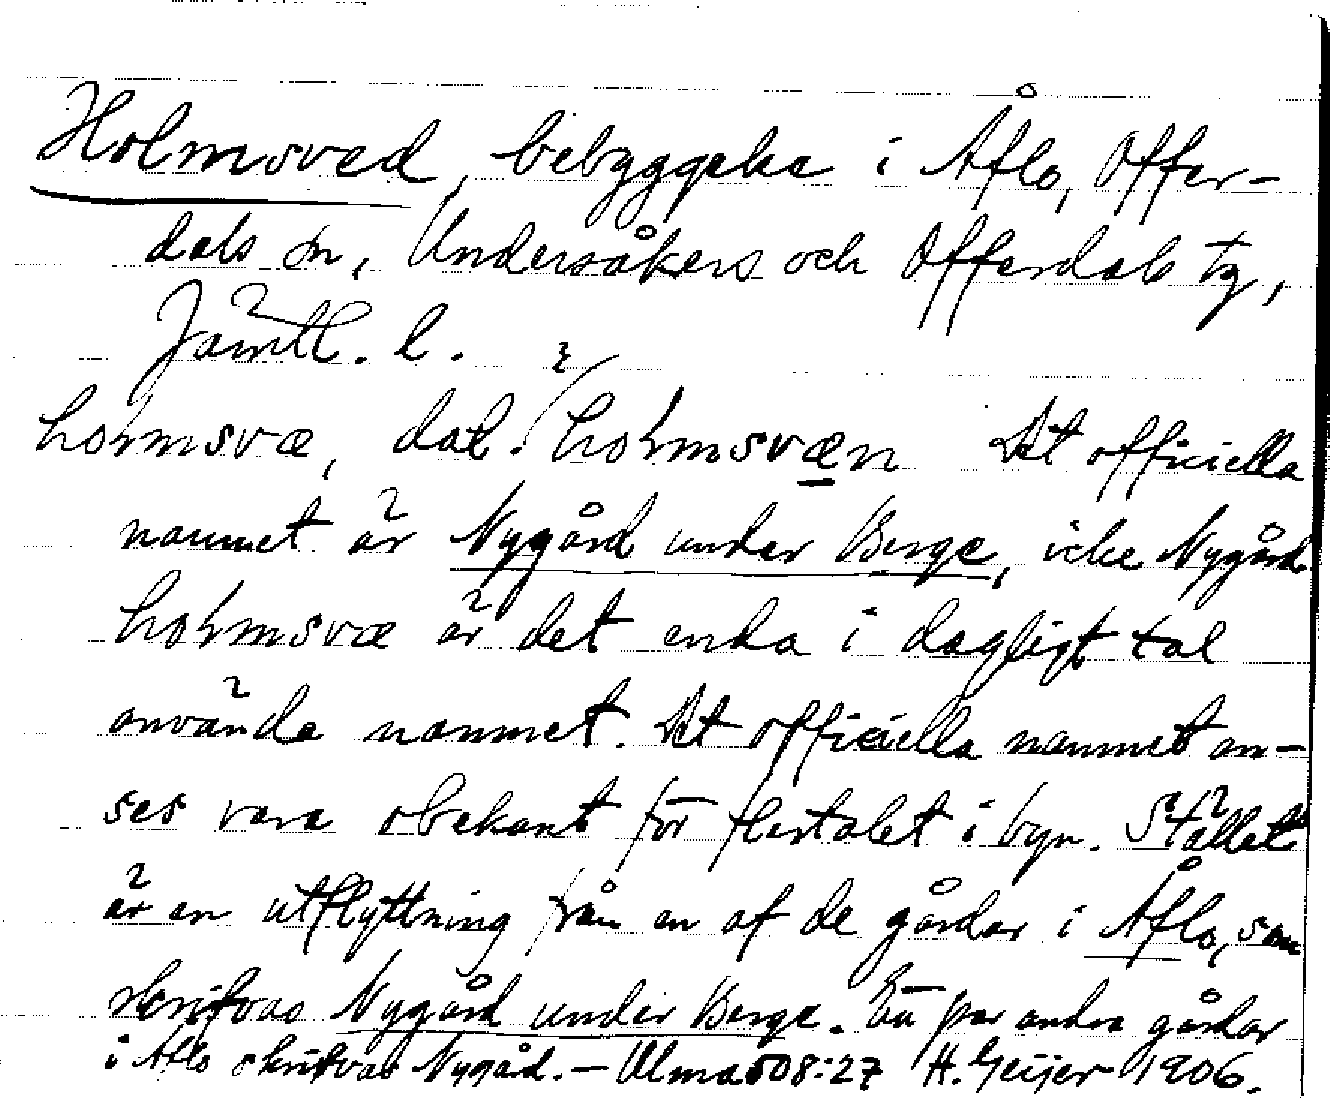 Holmsved, bebyggelse i Åflo, Offer-
dals sn, Undersåkers och Offerdals tg,
Jämtl. l.
holmsvæ, dat. holmsvæn Det officiella
namnet är Nygård under Berge, icke Nygård
holmsvæ är det enda i dagligt tal
använda namnet. Det officiella namnet an-
ses vara obekant för flertalet i byn. Stället
är en utflyttning från en af de gårdar i Åflo, som
skrifvas Nygård under Berge. Ett par andra gårdar
i Åflo skrifvas Nygård. – Ulma 508:27 H. Geijer 1906.